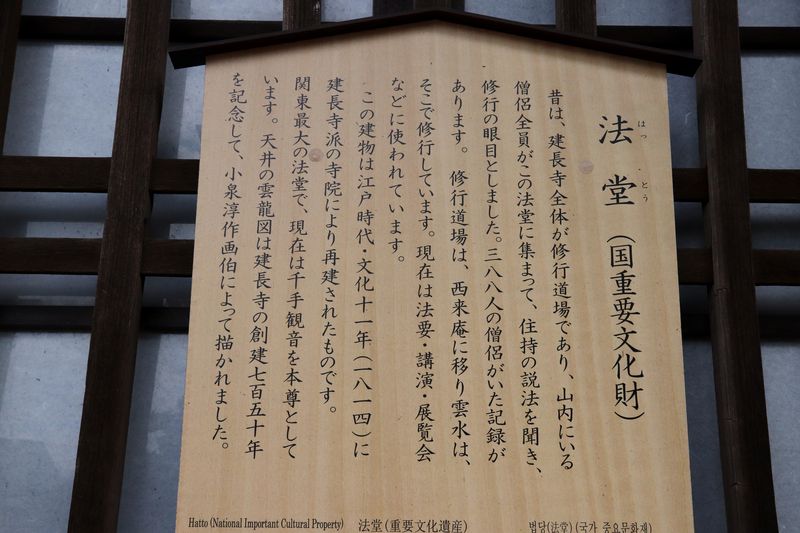 法堂（国重要文化財）
はっ とう
昔は、建長寺全体が修行道場であり、山内にいる
僧侶全員がこの法堂に集まって、住持の説法を聞き、
修行の眼目としました。三八八人の僧侶がいた記録が
あります。修行道場は、西来庵に移り雲水は、
そこで修行しています。現在は法要・講演・展覧会
などに使われています。
この建物は江戸時代・文化十一年（一八一四）に
建長寺派の寺院により再建されたものです。
関東最大の法堂で、現在は千手観音を本尊として
います。天井の雲龍図は建長寺の創建七百五十年
を記念して、小泉淳作画伯によって描かれました。
Hatto (National Important Cultural Property)
法堂(重要文化遺産)
법당(法堂) (국가 중요문화재)